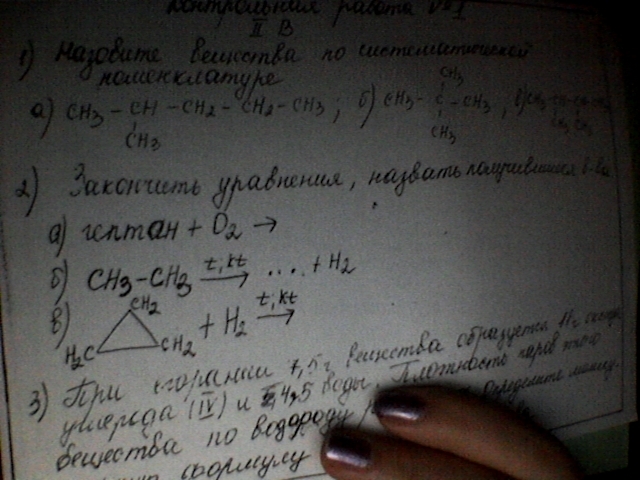 Контрольная работа №1
II В
1) Назовите вещества по систематической
номенклатуре
а) CH3 – CH – CH2 – CH2 – CH3 ; б) CH3 – C – CH3 ; в)
CH3
CH3
CH3
2) Закончить уравнения, назвать получившиеся в-ва
а) гептан + O2 →
б) CH3–CH3 t, kt → .... + H2
в) CH2
H2C CH2 + H2 t, kt →
3) При сгорании 7,5 г вещества образуется 11г
углерода (IV) и 4,5 воды. Плотность паров этого
вещества по водороду Определите
формулу